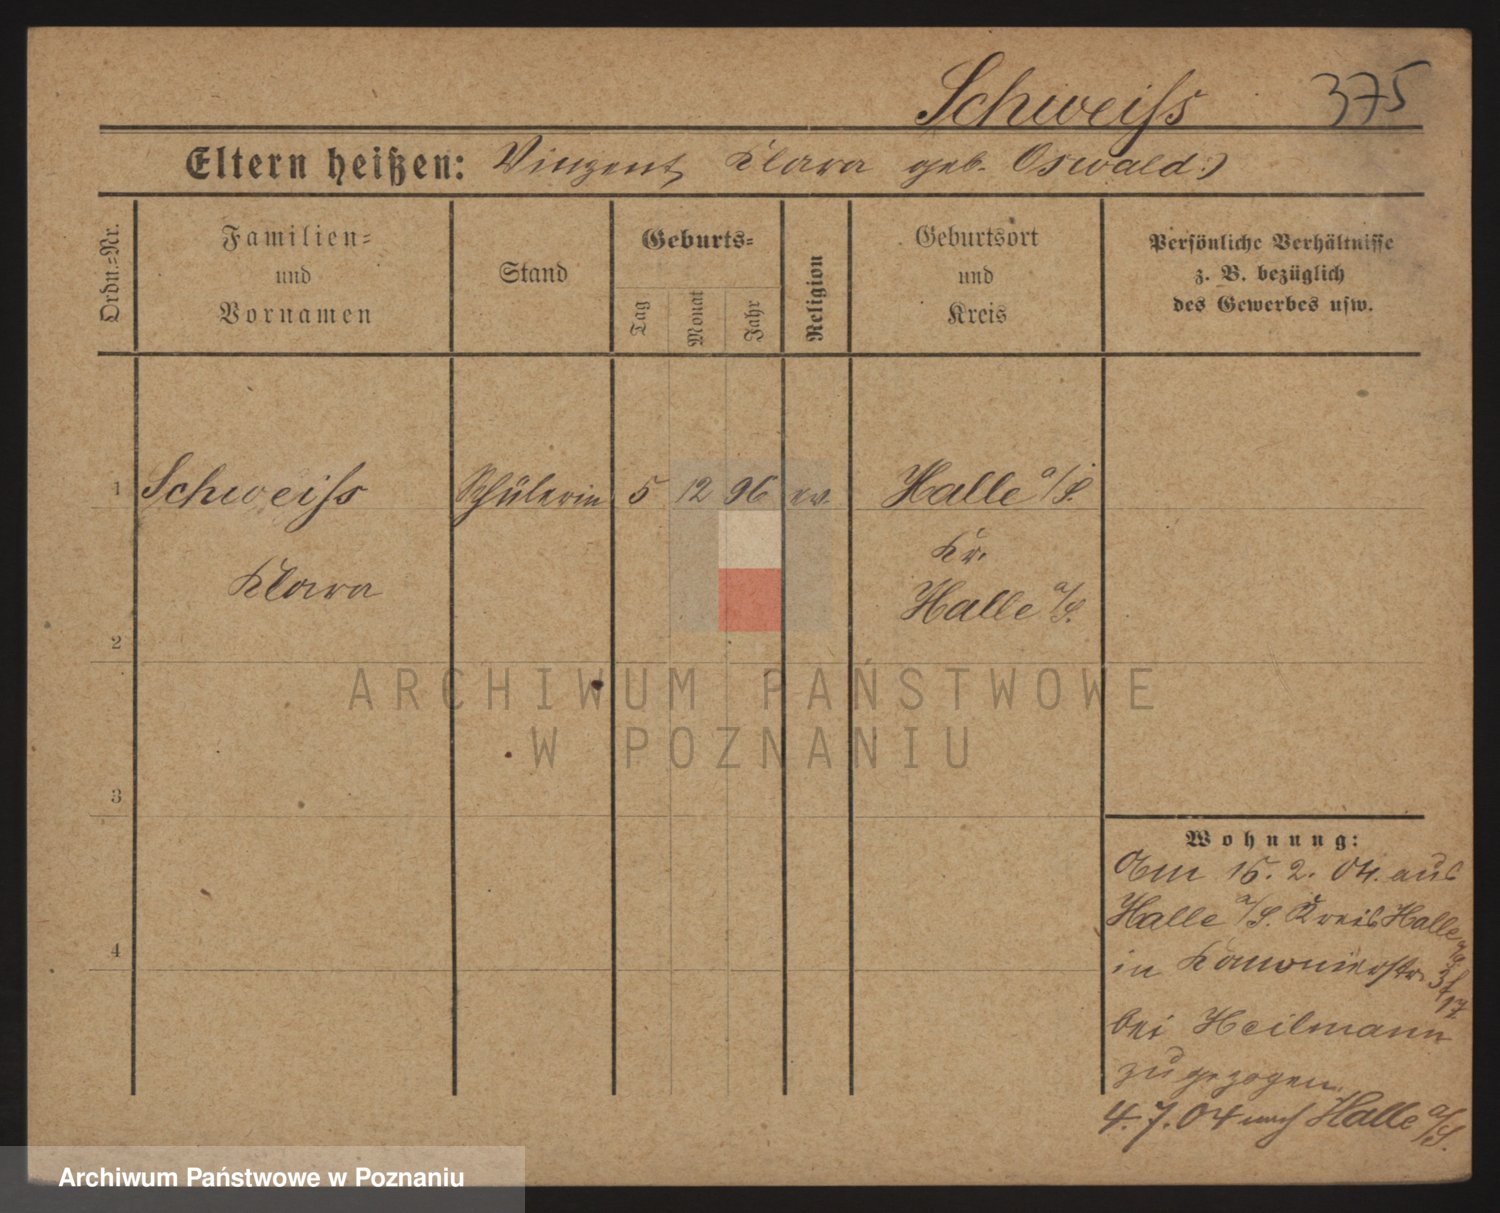 Schweiss 375
Eltern heißen: Vinzent, Klara geb. Oswald.)
Ordn.-Nr.
Familien-
und
Vornamen
Stand
Geburts-
Tag
Monat
Jahr
Religion
Geburtsort
und
Kreis
Persönliche Verhältnisse
z. B. bezüglich
des Gewerbes usw.
1 Schweiss Schülerin 5 12 96 ev. Halle a/S.
Kr.
Klara Halle a/S.
2
ARCHIWUM PAŃSTWOWE
W POZNANIU
3
Wohnung:
Am 15. 2. 04. aus
Halle a/S. Kreis Halle a/S
4
in
bei Heilmann
zugezogen.
4.7.04 nach Halle a/S.
Archiwum Państwowe w Poznaniu